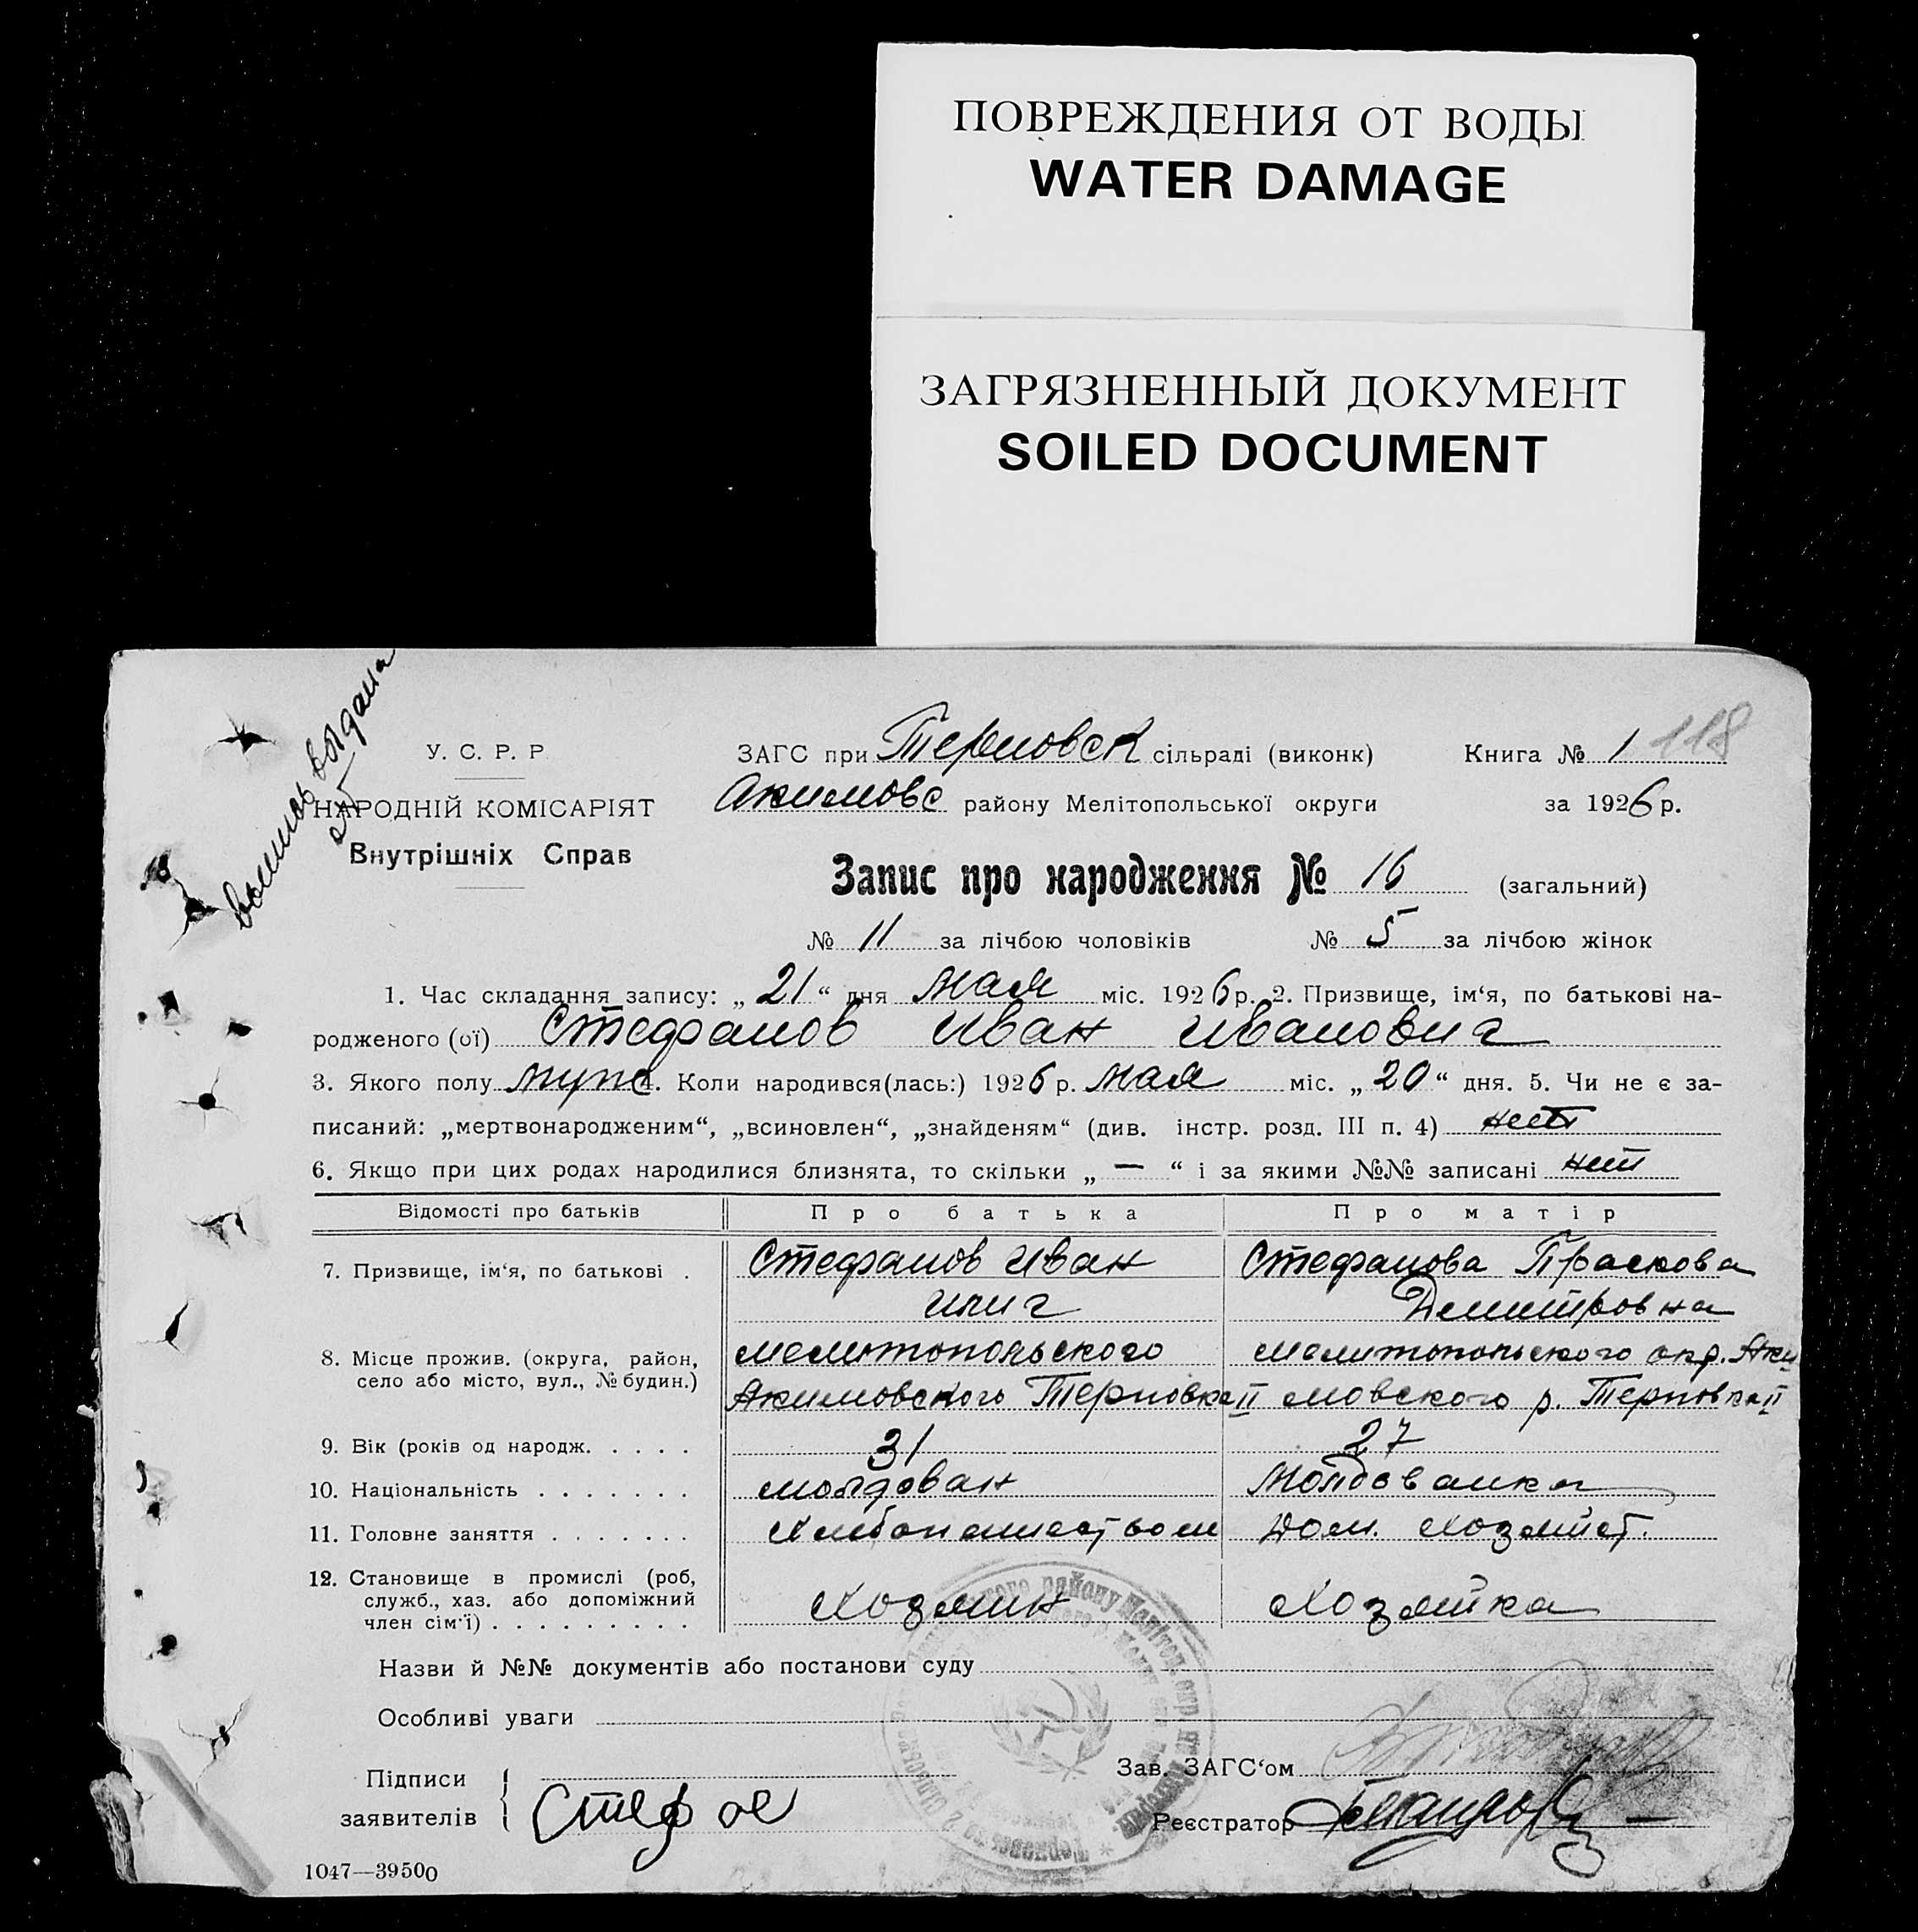 ПОВРЕЖДЕНИЯ ОТ ВОДЫ
WATER DAMAGE
ЗАГРЯЗНЕННЫЙ ДОКУМЕНТ
SOILED DOCUMENT
выпись выдана
У. С. Р. Р
НАРОДНІЙ КОМІСАРІЯТ
Внутрішніх Справ
ЗАГС при Терновск сільраді (виконк) Книга № 1 118
Акимовс району Мелітопольської округи за 1926 р.
Запис про народження № 16 (загальний)
№ 11 за лічбою чоловіків № 5 за лічбою жінок
1. Час складання запису: „ 21 “ дня мая міс. 1926 р. 2. Призвище, ім‘я, по батькові на-
родженого (ої) Стефанов Иван Иванович
3. Якого полу муж 4. Коли народився(лась:) 1926 р. мая міс. „ 20 “ дня. 5. Чи не є за-
писаний: „мертвонародженим“, „всиновлен“, „знайденям“ (див. інстр. розд. III п. 4) нет
6. Якщо при цих родах народилися близнята, то скільки „ — “ і за якими №№ записані нет
Відомості про батьків Про батька Про матір
7. Призвище, ім‘я, по батькові . Стефанов Иван Стефанова Праскова
Илич Дмитровна
8. Місце прожив. (округа, район, село або місто, вул., № будин.) Мелитопольского Мелитопольского окр. Аки
Акимовского Терновка II мовского р. Терновка II
9. Вік (років од народж. . . . . 31 27
10. Національність . . . . . . . молдован Молдованка
11. Головне заняття . . . . . . . Хлебопашеством Дом. хозяйст.
12. Становище в промислі (роб, служб., хаз. або допоміжний член сім‘ї) . . . . . . . . . Хозяин Хозяйка
Назви й №№ документів або постанови суду
Особливі уваги
Підписи
заявителів
Стефов
Зав. ЗАГС‘ом
Реєстратор
1047—39500